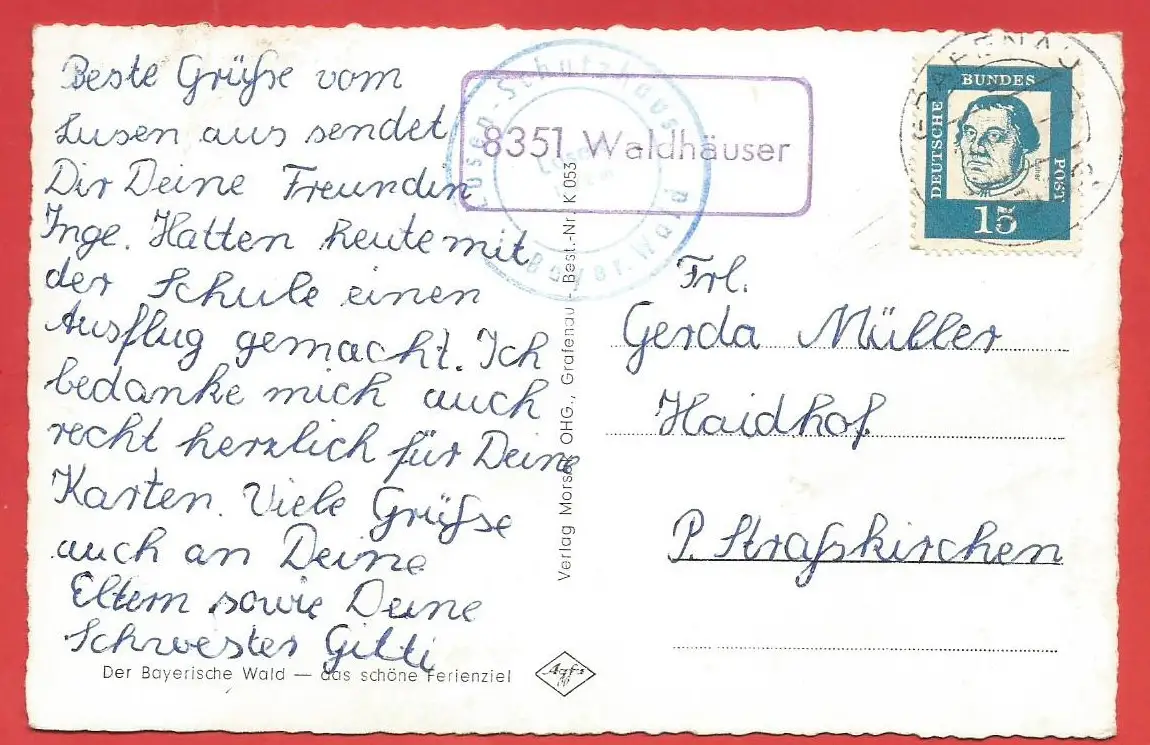 Beste Grüße vom
Lusen aus sendet
Dir Deine Freundin
Inge. Hatten heute mit
der Schule einen
Ausflug gemacht. Ich
bedanke mich auch
recht herzlich für Deine
Karten. Viele Grüße
auch an Deine
Eltern sowie Deine
Schwester Gitti
Der Bayerische Wald — das schöne Ferienziel
Lusen-Schutzhaus
Bayer. Wald
8351 Waldhäuser
Verlag Morsak OHG., Grafenau - Best.-Nr. K 053
Agfa
DEUTSCHE
BUNDES
POST
15
GRAFENAU
Frl.
Gerda Müller
Haidhof
P. Straßkirchen